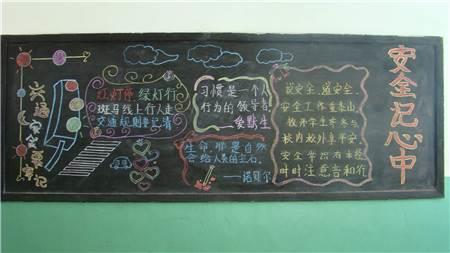 交通安全要牢记
红灯停 绿灯行
斑马线上行人走
交通规则要记清
习惯是一个人
行为的领导者
——爱默生
生命 那是自然
会给人类的宝石
——诺贝尔
说安全 道安全
安全工作重泰山
学生
校内校外享平安
安全常识有
时时注意言和行
安全记心中